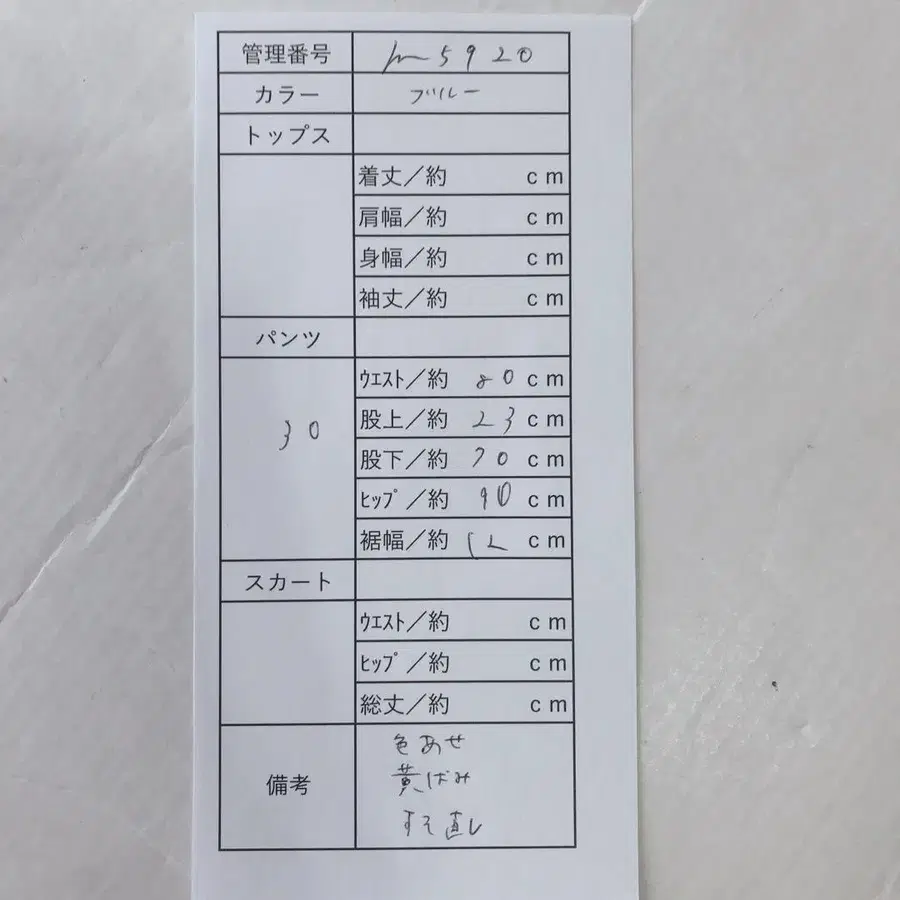 管理番号 m5920
カラー ブルー
トップス
着丈／約 cm
肩幅／約 cm
身幅／約 cm
袖丈／約 cm
パンツ
30
ｳｴｽﾄ／約 80 cm
股上／約 23 cm
股下／約 70 cm
ﾋｯﾌﾟ／約 90 cm
裾幅／約 12 cm
スカート
ｳｴｽﾄ／約 cm
ﾋｯﾌﾟ／約 cm
総丈／約 cm
備考
色あせ
黄ばみ
すそ直し